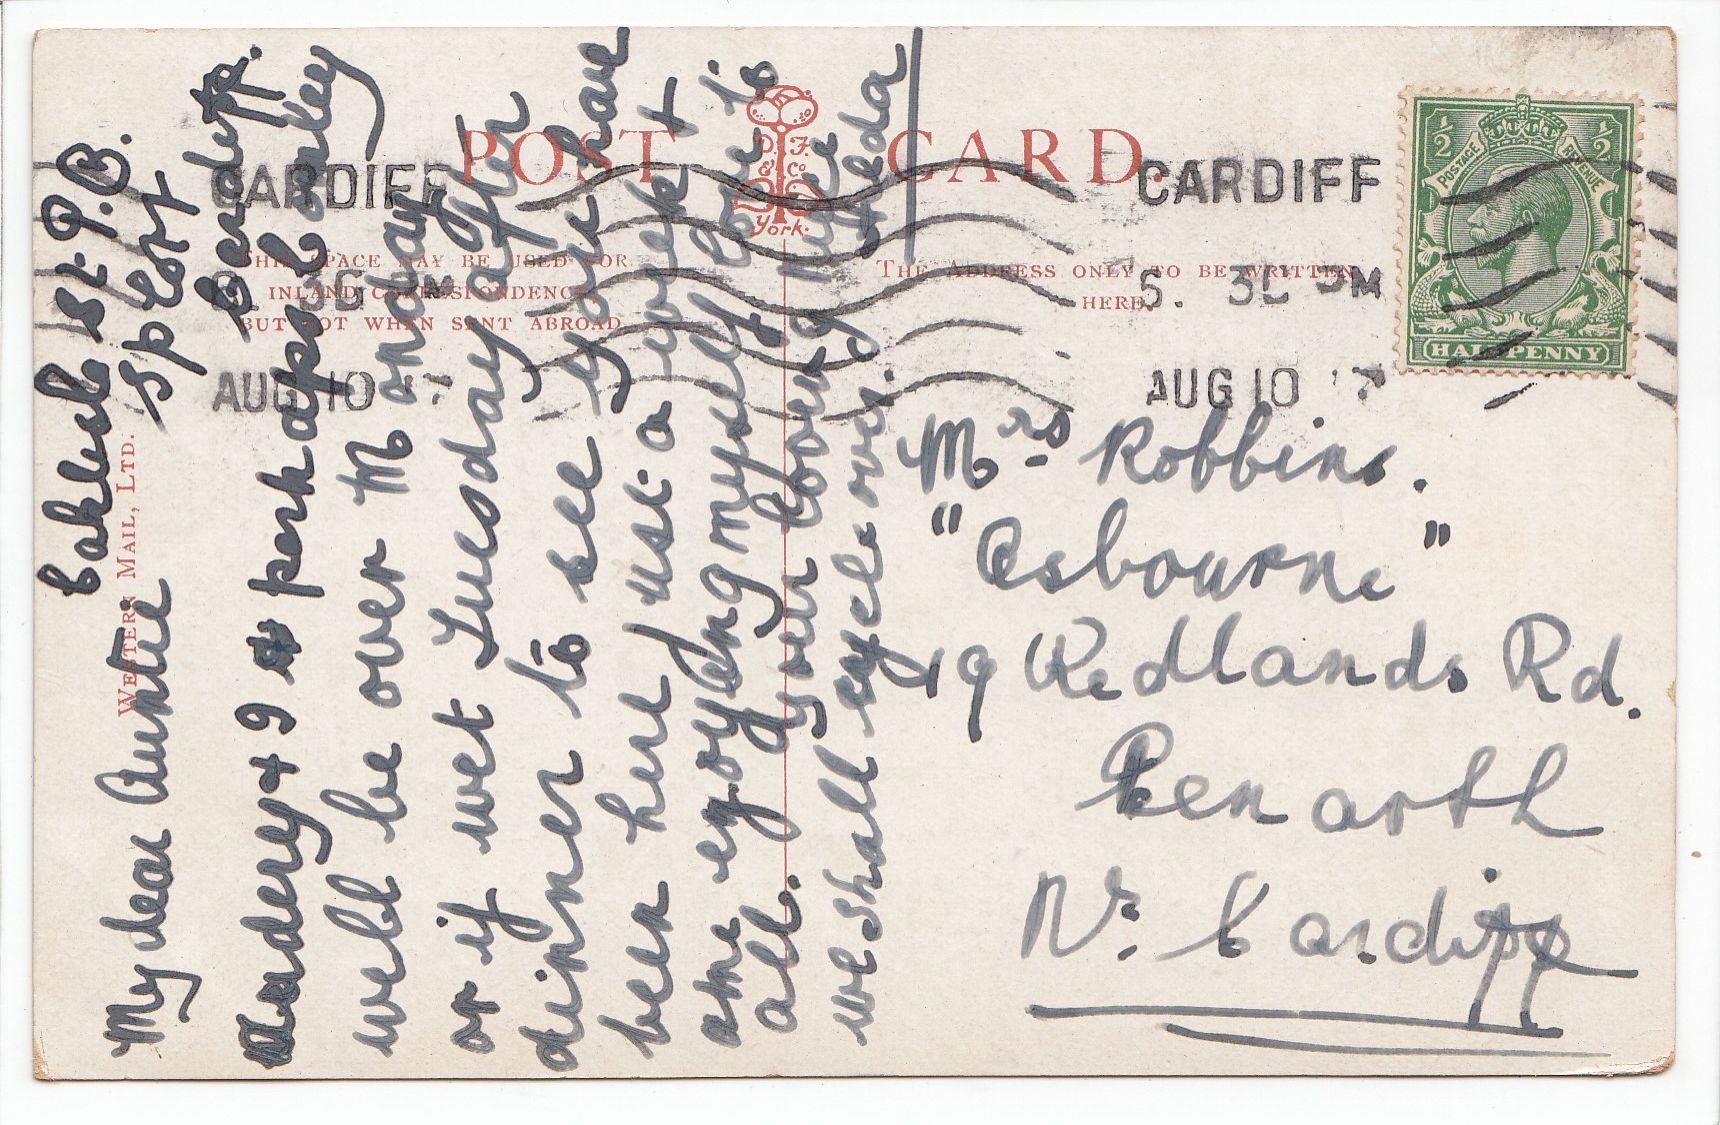 POST CARD.
D. F. & Co
York.
THIS SPACE MAY BE USED FOR
INLAND CORRESPONDENCE,
BUT NOT WHEN SENT ABROAD.
THE ADDRESS ONLY TO BE WRITTEN
HERE.
WESTERN MAIL, LTD.
CARDIFF
AUG 10
CARDIFF
5. 30 PM
AUG 10
POSTAGE REVENUE
½ ½
HALFPENNY
St. P.B.
Splott
Cardiff.
My dear Auntie
& I perhaps Corley
will be over Monday
or if wet Tuesday after
dinner to see you have
been here just a week &
am enjoying myself Love to
all. your loving niece
we shall cycle over.
Mrs Robbins.
"Osbourne"
19 Redlands Rd.
Penarth
Nr. Cardiff